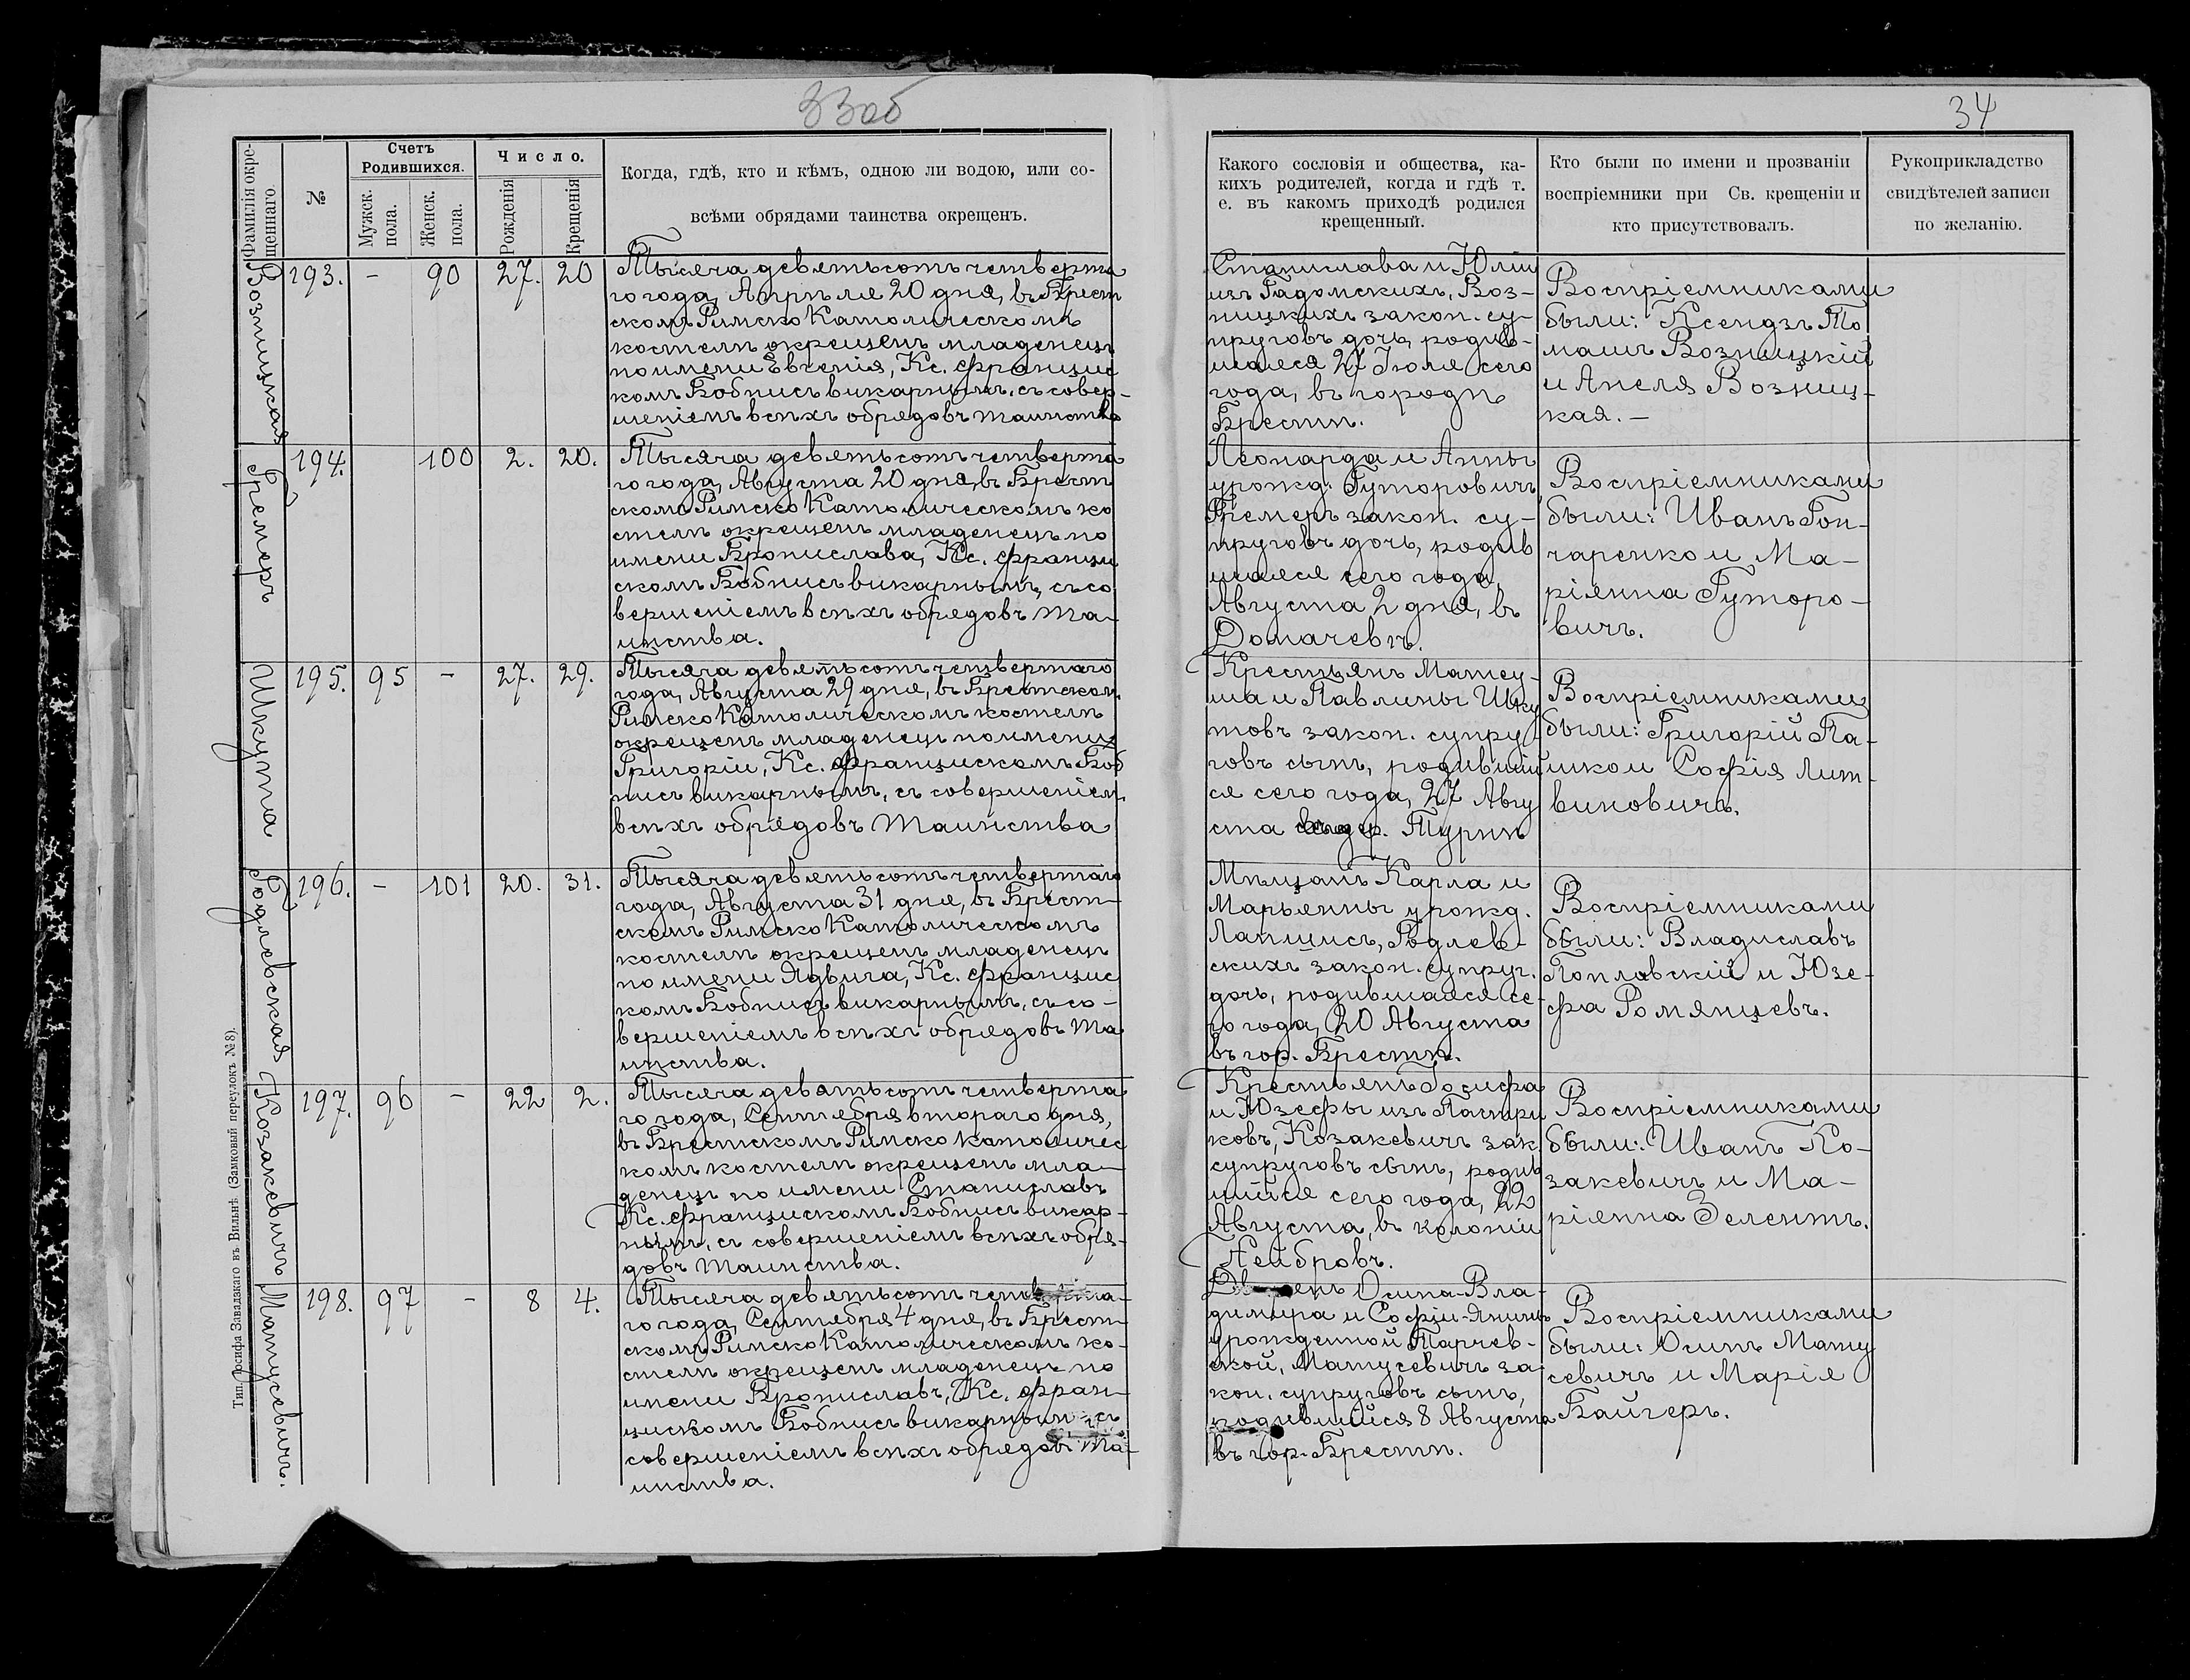 33об
34
Фамилія окре-
щеннаго.
№
Счетъ
Родившихся.
Мужск.
пола.
Женск.
пола.
Число.
Рожденія
Крещенія
Когда, гдѣ, кто и кѣмъ, одною ли водою, или со-
всѣми обрядами таинства окрещенъ.
Какого сословія и общества, ка-
кихъ родителей, когда и гдѣ т.
е. въ какомъ приходѣ родился
крещенный.
Кто были по имени и прозваніи
воспріемники при Св. крещеніи и
кто присутствовалъ.
Рукоприкладство
свидѣтелей записи
по желанію.
Возницкая
193. - 90 27. 20
Тысяча девятьсотъ четверта
го года, Апрѣля 20 дня, въ Брест
скомъ Римско Католическомъ
костелѣ окрещенъ младенецъ
по имени Евгенія, Кс. Францис
комъ Бобнисъ викарнымъ, съ совер-
шеніемъ всѣхъ обрядовъ таинства
Станислава и Юліи
изъ Гадомскихъ, Воз-
ницкихъ закон. су-
пруговъ дочь, родив-
шаяся 27 Іюля сего
года, въ городѣ
Брестѣ.
Воспріемниками
были: Ксендзъ То
машъ Возницкій
и Анеля Возниц-
кая. -
Гремеръ
194. 100 2. 20.
Тысяча девятьсотъ четверта
го года, Августа 20 дня, въ Брест
скомъ Римско Католическомъ ко
стелѣ окрещенъ младенецъ по
имени Бронислава, Кс. Франци
скомъ Бобнисъ викарнымъ, съ со
вершеніемъ всѣхъ обрядовъ Та-
инства.
Леонарда и Анны
урожд. Гуторовичъ
Гремеръ закон. су-
пруговъ дочь, родив
шаяся сего года,
Августа 2 дня, въ
Домачевѣ.
Воспріемниками
были: Иванъ Гон-
чаренко и Ма-
ріянна Гуторо-
вичъ.
Шкута
195. 95 - 27. 29.
Тысяча девятьсотъ четвертаго
года, Августа 29 дня, въ Брестском.
Римско Католическомъ костелѣ
окрещенъ младенецъ по имени
Григорій, Кс. Францискомъ Боб
нисъ викарнымъ, съ совершеніем.
всѣхъ обрядовъ Таинства
Крестьянъ Матеу-
ша и Павлины Шку
товъ закон. супру
говъ сынъ, родивший
ся сего года, 27 Авгу
ста дер. Турнѣ
Воспріемниками
были: Григорій Па-
шко и Софія Лит-
виновичъ.
Годлевская
196. - 101 20. 31.
Тысяча девятьсотъ четвертаго
года, Августа 31 дня, въ Брест-
скомъ Римско Католическомъ
костелѣ окрещенъ младенецъ
по имени Ядвига, Кс. Францис
комъ Бобнисъ викарнымъ, съ со-
вершеніемъ всѣхъ обрядовъ Та
инства.
Мѣщанъ Карла и
Марьянны урожд.
Лапщисъ, Годлев-
скихъ закон. супруг.
дочь, родившаяся се-
го года, 20 Августа
въ гор. Брестѣ.
Воспріемниками
были: Владиславъ
Поплавскій и Юзе-
фа Ромянцевъ.
Козакевичъ
197. 96 - 22 2.
Тысяча девятьсотъ четверта
го года, Сентября второго дня,
въ Брестскомъ Римско католичес
комъ костелѣ окрещенъ мла-
денецъ по имени Станиславъ
Кс. Францискомъ Бобнисъ викар-
нымъ, съ совершеніемъ всѣхъ обря-
довъ Таинства.
Крестьянъ Іосифа
и Юзефы изъ Пастри
ковъ, Козакевичъ зак.
супруговъ сынъ, родив
шійся сего года, 22
Августа, въ колоніи
Нейбровъ.
Воспріемниками
были: Иванъ Ко-
закевичъ и Ма-
ріянна Зелентъ.
Матусевичъ.
198. 97 - 8 4.
Тысяча девятьсотъ четверта-
го года, Сентября 4 дня, въ Брест-
скомъ Римско Католическомъ ко-
стелѣ окрещенъ младенецъ по
имени Брониславъ, Кс. Фран-
цискомъ Бобнисъ викарным съ
совершеніемъ всѣхъ обрядовъ Та-
инства.
Осипа-Вла-
диміра и Софіи-Янины
урожденной Тарчев-
ской, Матусевичъ за-
кон. супруговъ сынъ,
родившійся 8 Августа
въ гор. Брестѣ.
Воспріемниками
были: Осипъ Мату
севичъ и Марія
Байгеръ.
Тип. Іосифа Завадзкаго въ Вильнѣ. (Замковый переулокъ № 8).